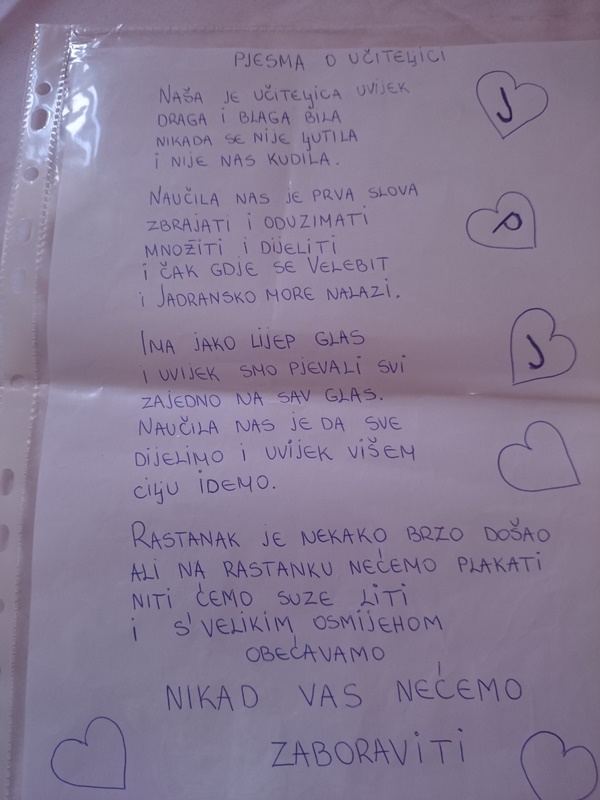 PJESMA O UČITELJICI
NAŠA JE UČITELJICA UVIJEK
DRAGA I BLAGA BILA
NIKADA SE NIJE LJUTILA
I NIJE NAS KUDILA.
NAUČILA NAS JE PRVA SLOVA
ZBRAJATI I ODUZIMATI
MNOŽITI I DIJELITI
I ČAK GDJE SE VELEBIT
I JADRANSKO MORE NALAZI.
IMA JAKO LIJEP GLAS
I UVIJEK SMO PJEVALI SVI
ZAJEDNO NA SAV GLAS.
NAUČILA NAS JE DA SVE
DIJELIMO I UVIJEK VIŠEM
CILJU IDEMO.
RASTANAK JE NEKAKO BRZO DOŠAO
ALI NA RASTANKU NEĆEMO PLAKATI
NITI ĆEMO SUZE LITI
I S' VELIKIM OSMIJEHOM
OBEĆAVAMO
NIKAD VAS NEĆEMO
ZABORAVITI
J
P
J